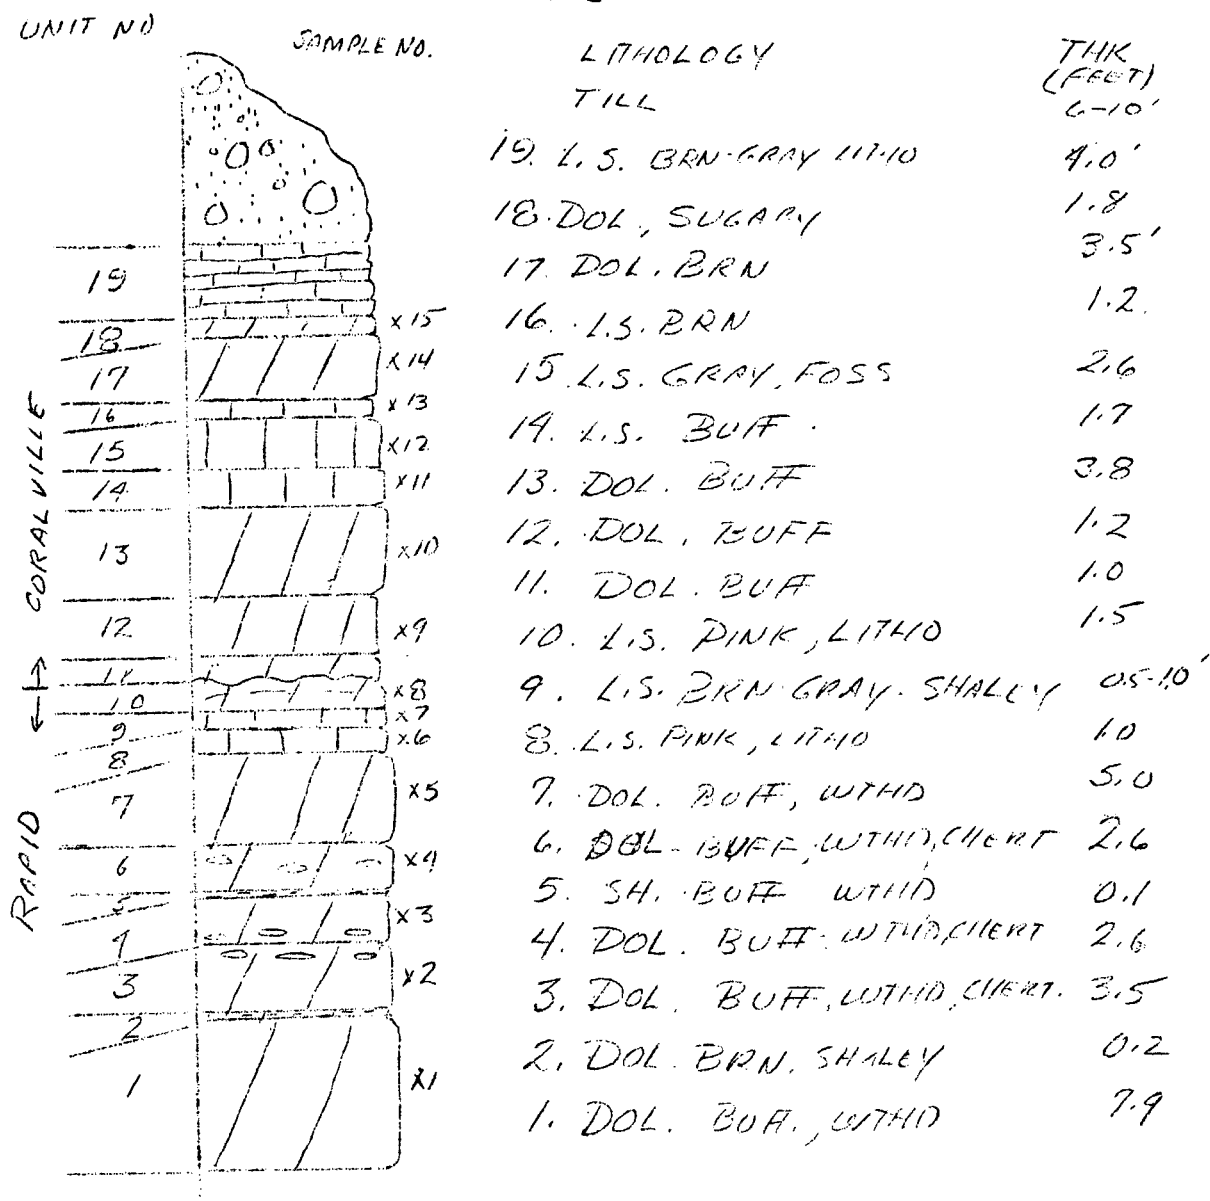 UNIT NO
SAMPLE NO.
LITHOLOGY
THK
(FEET)
TILL 6-10'
19. L.S. BRN-GRAY LITHO 4.0'
18. DOL., SUGARY 1.8
17. DOL. BRN 3.5'
16. L.S. BRN 1.2
15. L.S. GRAY, FOSS 2.6
14. L.S. BUFF 1.7
13. DOL. BUFF 3.8
12. DOL. BUFF 1.2
11. DOL. BUFF 1.0
10. L.S. PINK, LITHO 1.5
9. L.S. BRN-GRAY-SHALEY 0.5-1.0'
8. L.S. PINK, LITHO 1.0
7. DOL. BUFF, WTHD 5.0
6. DOL-BUFF, WTHD, CHERT 2.6
5. SH. BUFF WTHD 0.1
4. DOL. BUFF-WTHD, CHERT 2.6
3. DOL BUFF, WTHD, CHERT. 3.5
2. DOL. BRN. SHALEY 0.2
1. DOL. BUFF., WTHD 7.9
CORALVILLE
RAPID
19
18 x15
17 x14
16 x13
15 x12
14 x11
13 x10
12 x9
11
10 x8
9 x7
8 x6
7 x5
6 x4
5
4 x3
3 x2
2
1 x1